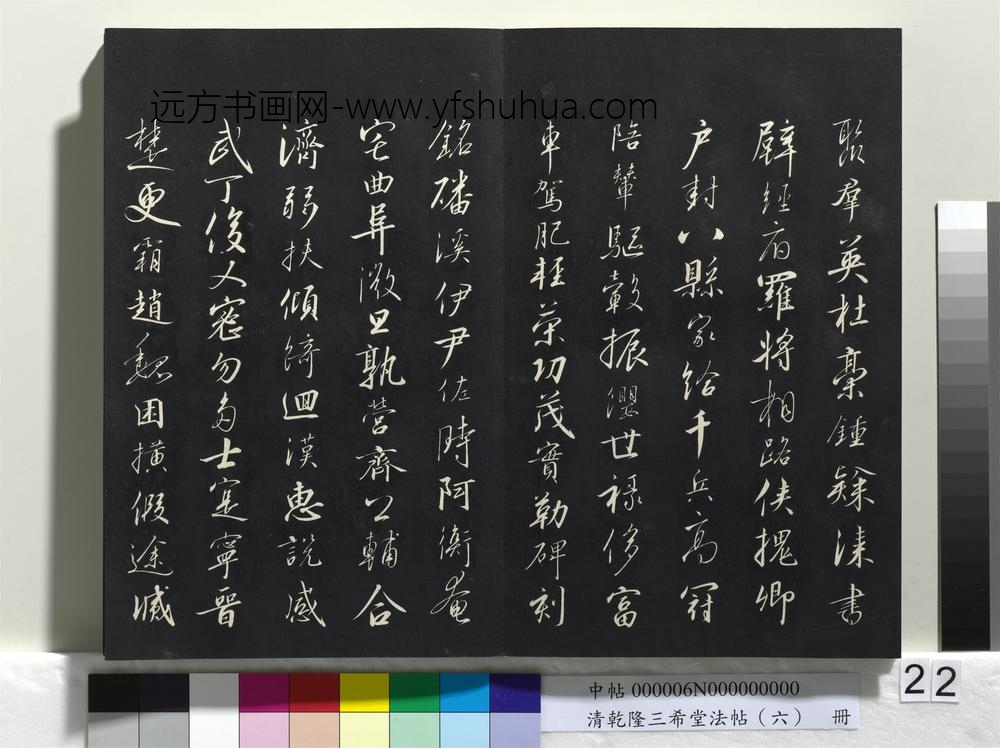 远方书画网-www.yfshuhua.com
聚羣英杜稾鍾隸漆書
壁經府羅將相路俠槐卿
户封八縣家給千兵高冠
陪輦驅轂振纓世禄侈富
車駕肥輕策功茂實勒碑刻
銘磻溪伊尹佐時阿衡奄
宅曲阜微旦孰營齊公輔合
濟弱扶傾綺迴漢惠説感
武丁俊乂密勿多士寔寧晉
楚更霸趙魏困横假途滅
中帖 000006N000000000
清乾隆三希堂法帖（六） 冊
22